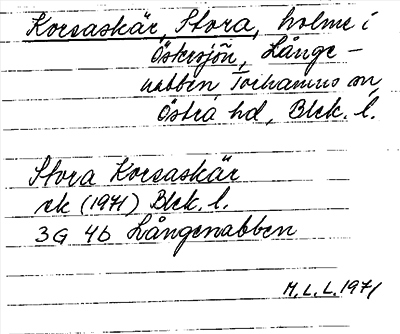 Korsaskär, Stora, holme i
Östersjön, Långe-
nabben, Torhamns sn,
Östra hd, Blek. l.
Stora Korsaskär
ek (1971) Blek. l.
3G 4b Långenabben
M.L.L. 1971